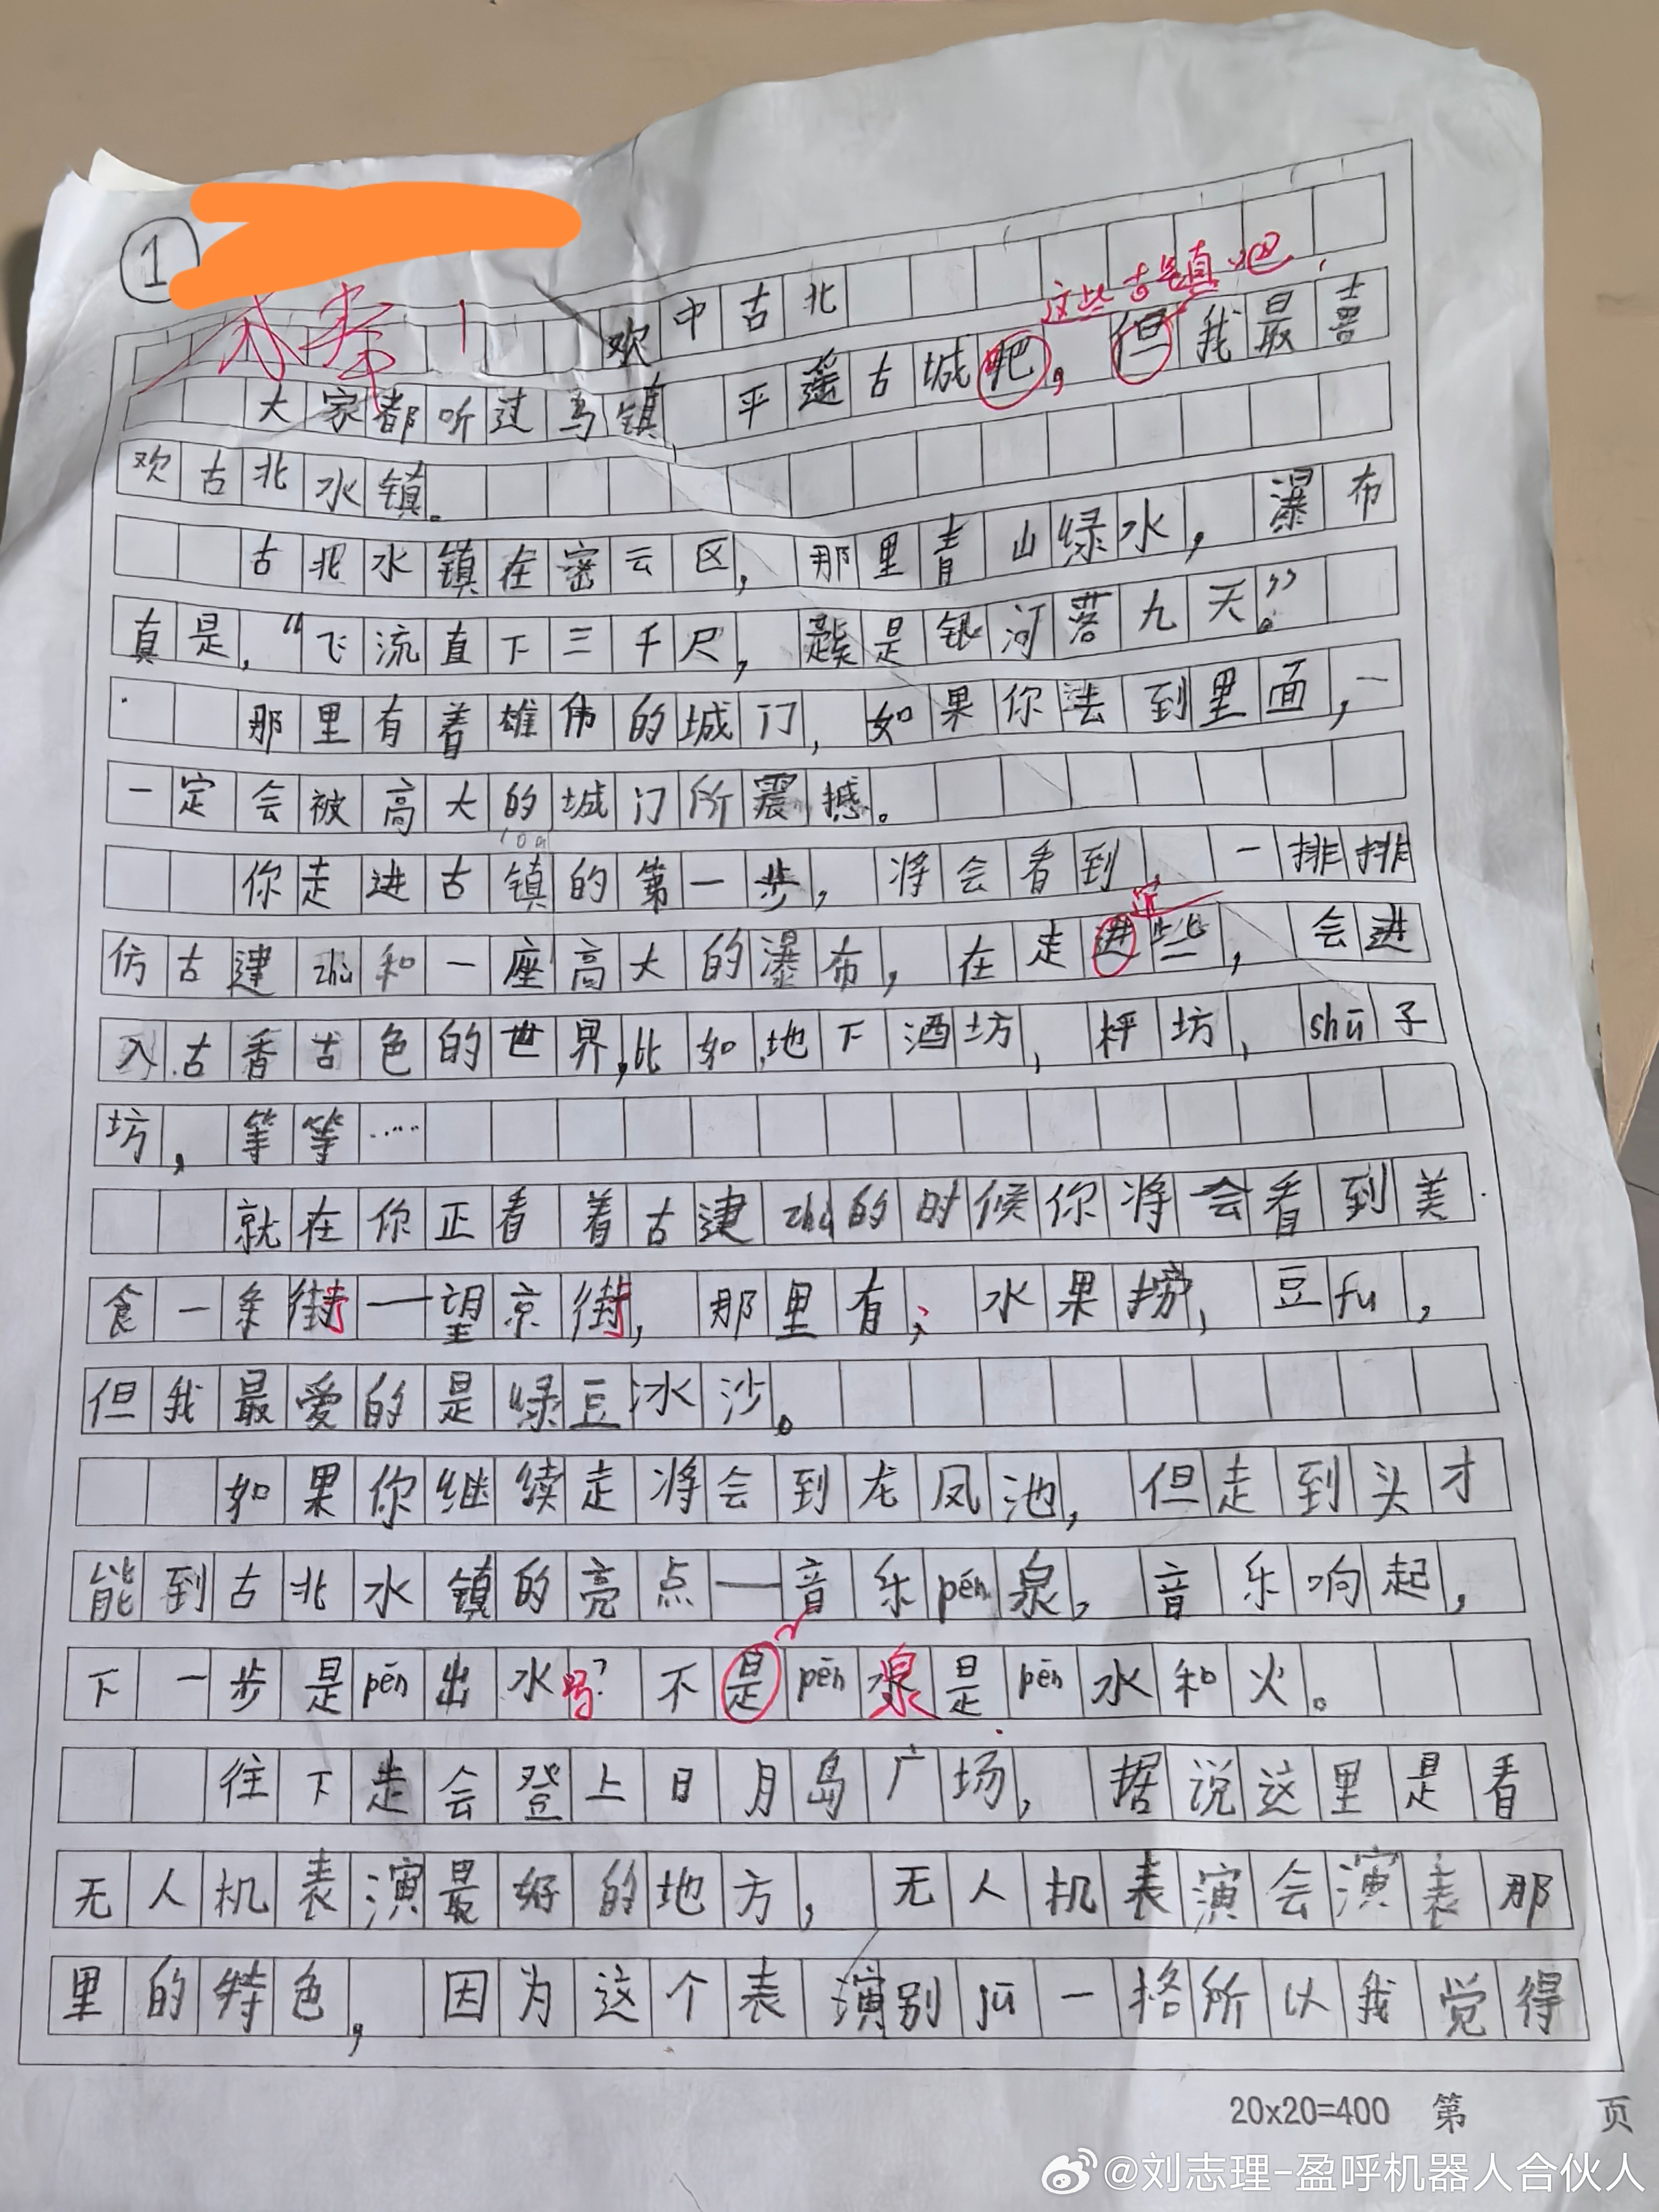 1
欢中古北
这些古镇吧
大家都听过乌镇 平遥古城吧，但我最喜
欢古北水镇。
古北水镇在密云区，那里青山绿水，瀑布
真是，“飞流直下三千尺，疑是银河落九天”。
那里有着雄伟的城门，如果你进到里面，一
一定会被高大的城门所震撼。
你走进古镇的第一步，将会看到，一排排
仿古建zhù和一座高大的瀑布，在走进些，会进
入古香古色的世界，比如地下酒坊，枰坊，shū子
坊，等等……
就在你正看着古建zhù的时候你将会看到美
食一条街——望京街，那里有；水果捞，豆fu，
但我最爱的是绿豆冰沙。
如果你继续走将会到龙凤池，但走到头才
能到古北水镇的亮点——音乐pēn泉，音乐响起，
下一步是pēn出水吗？不是pēn泉是pēn水和火。
往下走会登上日月岛广场，据说这里是看
无人机表演最好的地方，无人机表演会演表那
里的特色，因为这个表演别jū一格所以我觉得
20x20=400 第 页
@刘志理-盈呼机器人合伙人